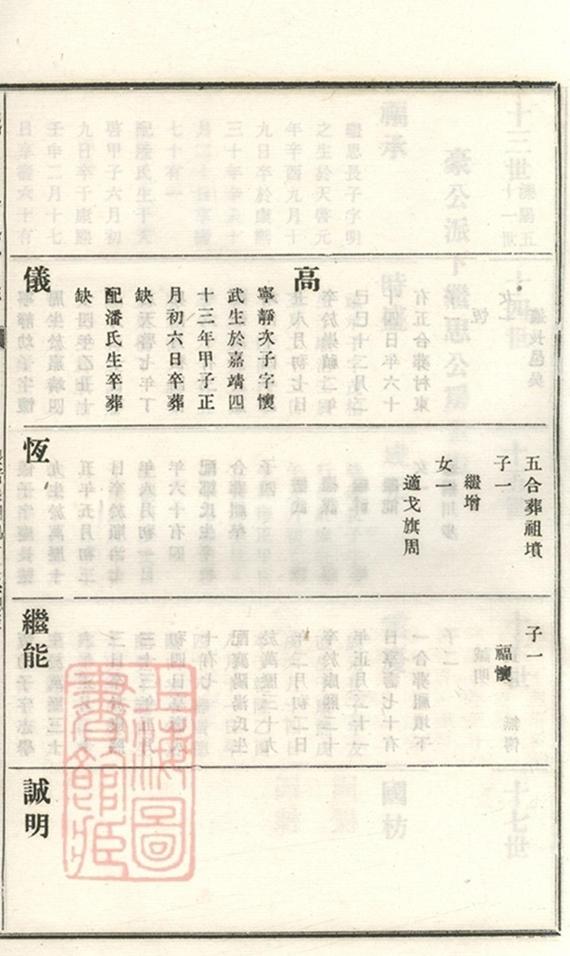 高
寧靜次子字懷
武生於嘉靖四
十三年甲子正
月初六日卒葬
缺
配潘氏生卒葬
缺
儀
五合葬祖墳
子一
繼增
女一
適戈旗周
恆
子一
福懷
繼能
誠明
上海圖書館藏